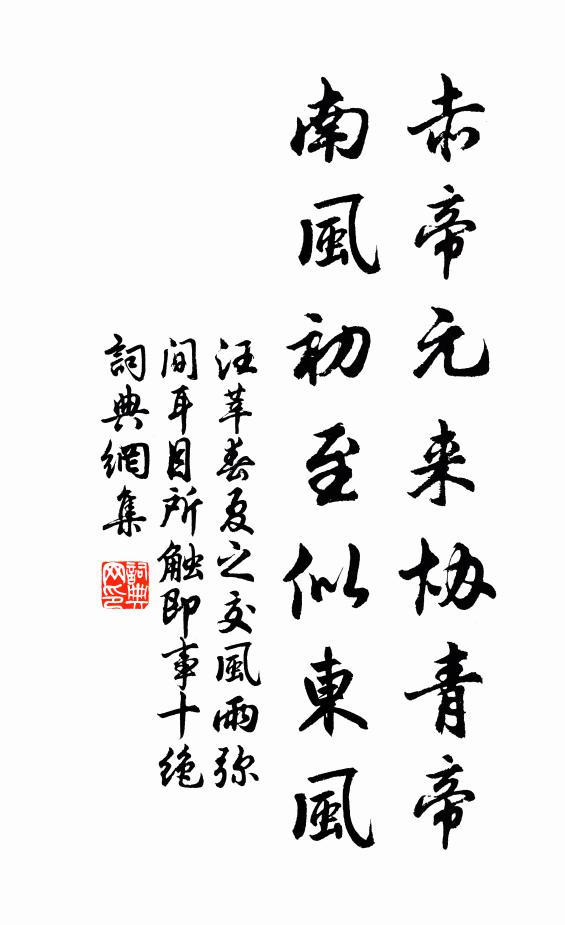 赤帝元来协青帝
南風初至似東風
汪莘春夏之交風雨弥
间耳目所触即事十绝
詞典網集
詞典
网印